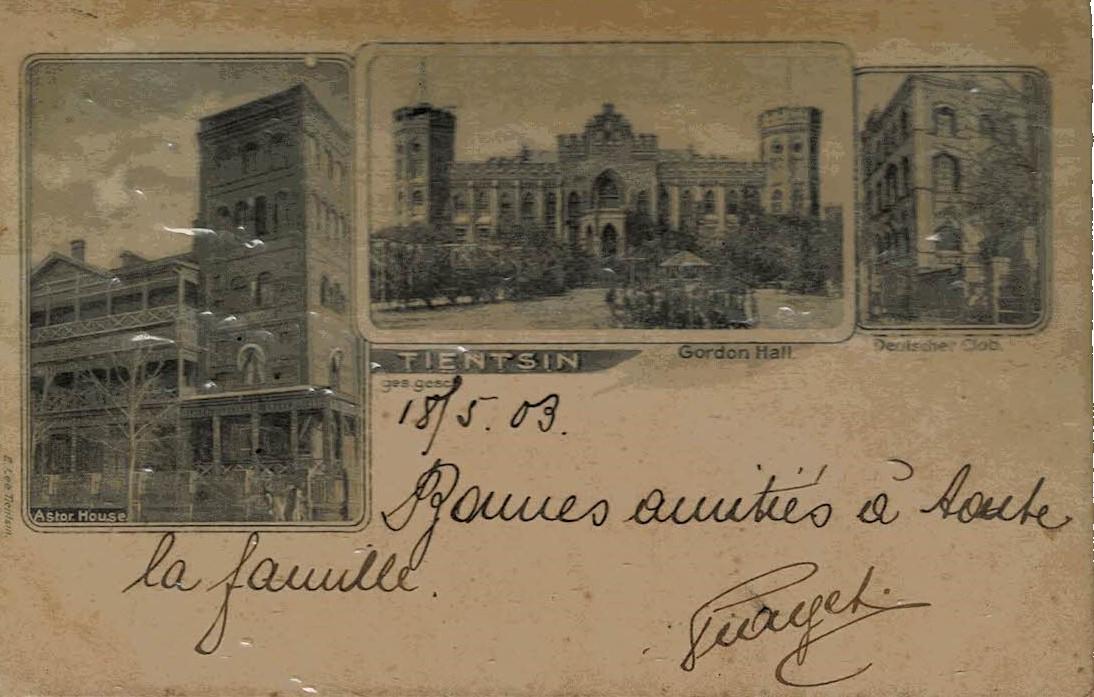 TIENTSIN
Gordon Hall.
Deutscher Club.
ges. gesch.
18/5. 03.
Bonnes amitiés à toute
la famille.
Astor House
E. Lee Tientsin